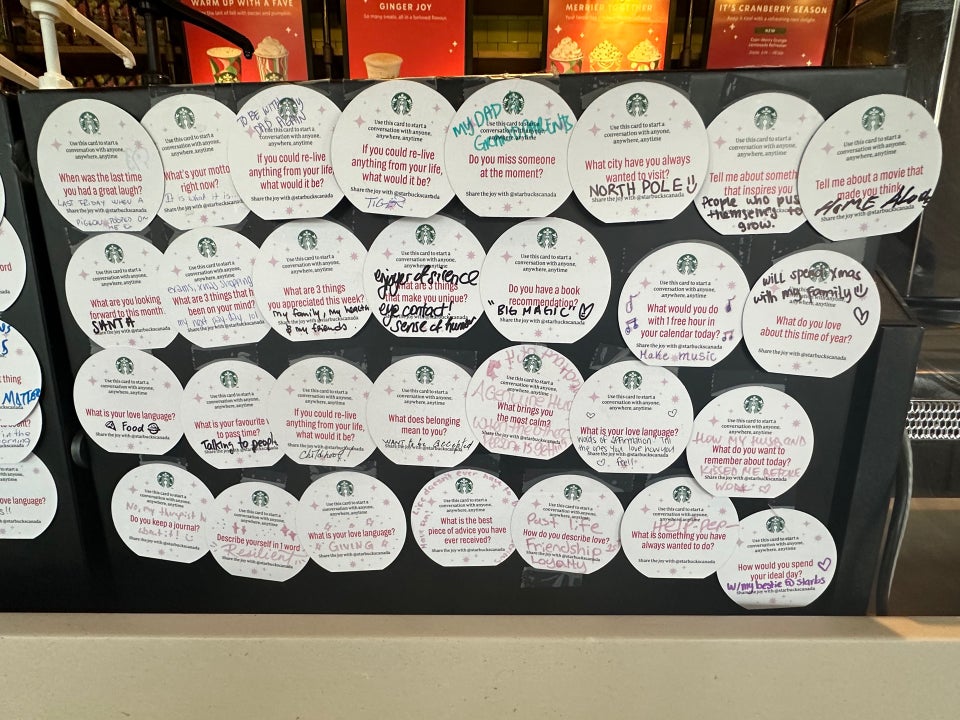 WARM UP WITH A FAVE
GINGER JOY
So many stars, all in a flavoured famous.
MERRIER TOGETHER
IT'S CRANBERRY SEASON
Keep it cool with a refreshing new delight.
NEW
Use this card to start a
conversation with anyone,
anywhere, anytime
When was the last time
you had a great laugh?
LAST FRIDAY WHEN A
PIGEON POOPED ON
ME
Use this card to start a
conversation with anyone,
anywhere, anytime
What's your motto
right now?
It is what it is
TO BE WITH MY
DAD AGAIN
anywhere, anytime
If you could re-live
anything from your life,
what would it be?
Share the joy with @starbuckscanada
Use this card to start a
conversation with anyone,
anywhere, anytime
If you could re-live
anything from your life,
what would it be?
Share the joy with @starbuckscanada
MY DAD
GRANDPARENTS
Do you miss someone
at the moment?
Share the joy with @starbuckscanada
Use this card to start a
conversation with anyone,
anywhere, anytime
What city have you always
wanted to visit?
NORTH POLE
Share the joy with @starbuckscanada
Use this card to start a
conversation with anyone,
anywhere, anytime
Tell me about someth
that inspires you
People who pus
themselves to
grow.
Use this card to start a
conversation with anyone,
anywhere, anytime
Tell me about a movie that
made you think
HOME Alone
Share the joy with @starbuckscanada
Use this card to start a
conversation with anyone,
anywhere, anytime
What are you looking
forward to this month
SANTA
Use this card to start a
conversation with anyone,
anywhere, anytime
exams, xmas shopping
What are 3 things that h
been on your mind?
my next pay day lol
Use this card to start a
conversation with anyone,
anywhere, anytime
What are 3 things
you appreciated this week?
my family, my health
& my friends
Use this card to start a
conversation with anyone,
enjoyer of silence
What are 3 things
that make you unique?
eye contact
sense of humor
Use this card to start a
conversation with anyone,
anywhere, anytime
Do you have a book
recommendation?
"BIG MAGIC"
Share the joy with @starbuckscanada
Use this card to start a
conversation with anyone,
anywhere, anytime
What would you do
with 1 free hour in
your calendar today?
Share the joy with @starbuckscanada
Make music
will spend xmas
with my family
What do you love
about this time of year?
Share the joy with @starbuckscanada
Use this card to start a
conversation with anyone,
anywhere, anytime
What is your love language?
Food
Share the joy with @starbuckscanada
Use this card to start a
conversation with anyone,
anywhere, anytime
What is your favourite
to pass time?
Talking to people
Use this card to start a
conversation with anyone,
anywhere, anytime
If you could re-live
anything from your life,
what would it be?
childhood!
Use this card to start a
conversation with anyone,
anywhere, anytime
What does belonging
mean to you?
WANT to be accepted
Use this card to start a
conversation with anyone,
anywhere, anytime
What brings you
the most calm?
Use this card to start a
conversation with anyone,
anywhere, anytime
What is your love language?
Words of affirmation. Tell
the ones you love how you
feel!
Use this card to start a
conversation with anyone,
anywhere, anytime
HOW MY HUSBAND
What do you want to
remember about today?
KISSED ME BEFORE
WORK
Use this card to start a
conversation with anyone,
anywhere, anytime
No, my therapist
Do you keep a journal?
Share the joy with @starbuckscanada
Use this card to start a
conversation with anyone,
anywhere, anytime
Describe yourself in 1 word
Resilient
Share the joy with @starbuckscanada
Use this card to start a
conversation with anyone,
anywhere, anytime
What is your love language?
GIVING
Share the joy with @starbuckscanada
Use this card to start a
conversation with anyone,
anywhere, anytime
What is the best
piece of advice you have
ever received?
Share the joy with @starbuckscanada
Use this card to start a
conversation with anyone,
Past life
How do you describe love?
Friendship
Loyalty
Use this card to start a
conversation with anyone,
anywhere, anytime
What is something you have
always wanted to do?
Share the joy with @starbuckscanada
Use this card to start a
conversation with anyone,
anywhere, anytime
How would you spend
your ideal day?
w/my bestie @ starbs
Share the joy with @starbuckscanada
ord
thing
MATTER
re love language?